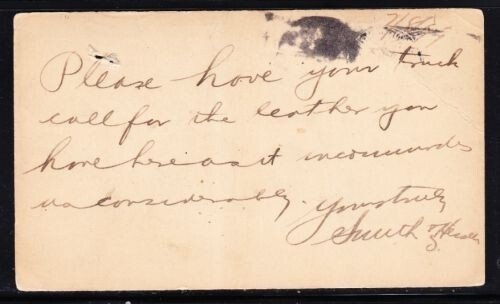 Please have your truck
call for the leather you
have here as it incommodes
us considerably. Yours truly
Smith &